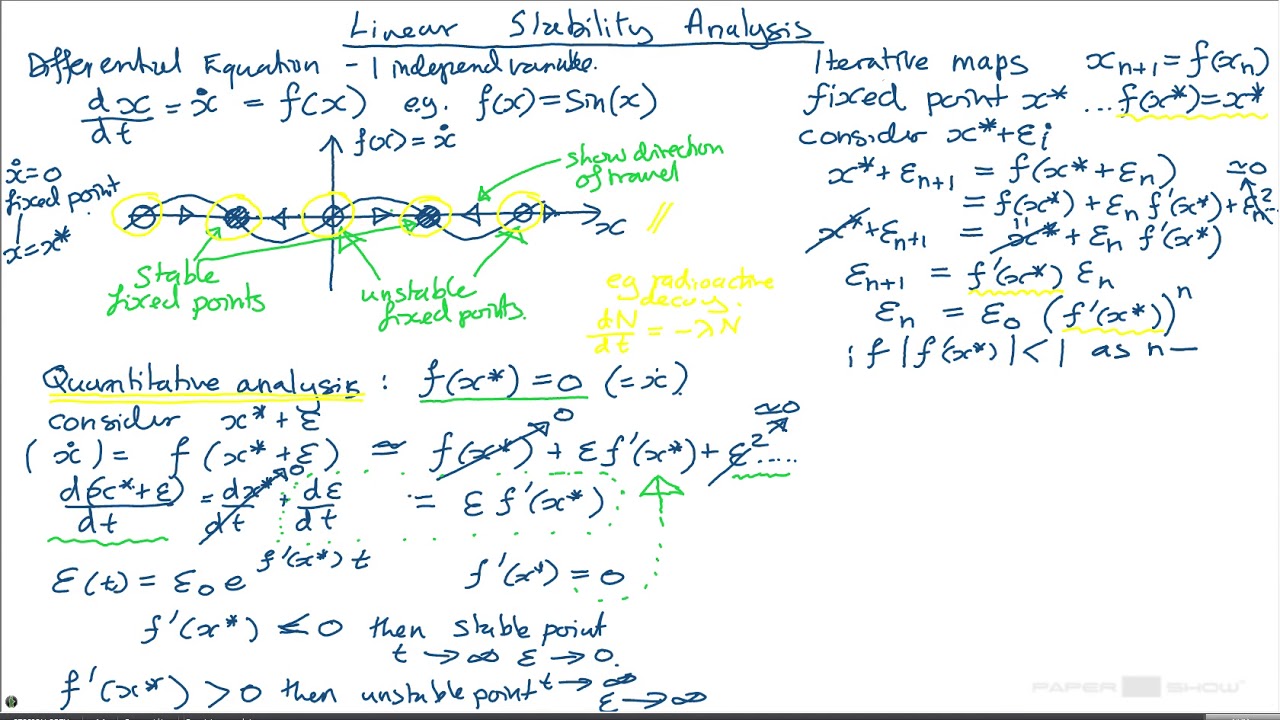 Linear Stability Analysis
Differential Equation - 1 independ variable.
dx/dt = ẋ = f(x) e.g. f(x) = Sin(x)
f(x) = ẋ
show direction
of travel
ẋ=0
fixed point
x=x*
x
Stable
fixed points
unstable
fixed points.
eg radioactive
decay.
dN/dt = -λN
Quantitative analysis : f(x*) = 0 (= ẋ)
consider x* + ε
(ẋ) = f(x* + ε) ≃ f(x*) + ε f'(x*) + ε² .....
0
≃0
d(x*+ε)/dt = dx*/dt + dε/dt = ε f'(x*)
0
ε(t) = ε₀ e^(f'(x*) t)
f'(x*) = 0
f'(x*) < 0 then stable point
t → ∞ ε → 0.
f'(x*) > 0 then unstable point t → ∞
ε → ∞
Iterative maps xₙ₊₁ = f(xₙ)
fixed point x* ... f(x*) = x*
consider x* + εi
x* + εₙ₊₁ = f(x* + εₙ)
≃0
= f(x*) + εₙ f'(x*) + εₙ²..
x* + εₙ₊₁ = x* + εₙ f'(x*)
εₙ₊₁ = f'(x*) εₙ
εₙ = ε₀ (f'(x*))ⁿ
if |f'(x*)| < 1 as n —
PAPER SHOW™